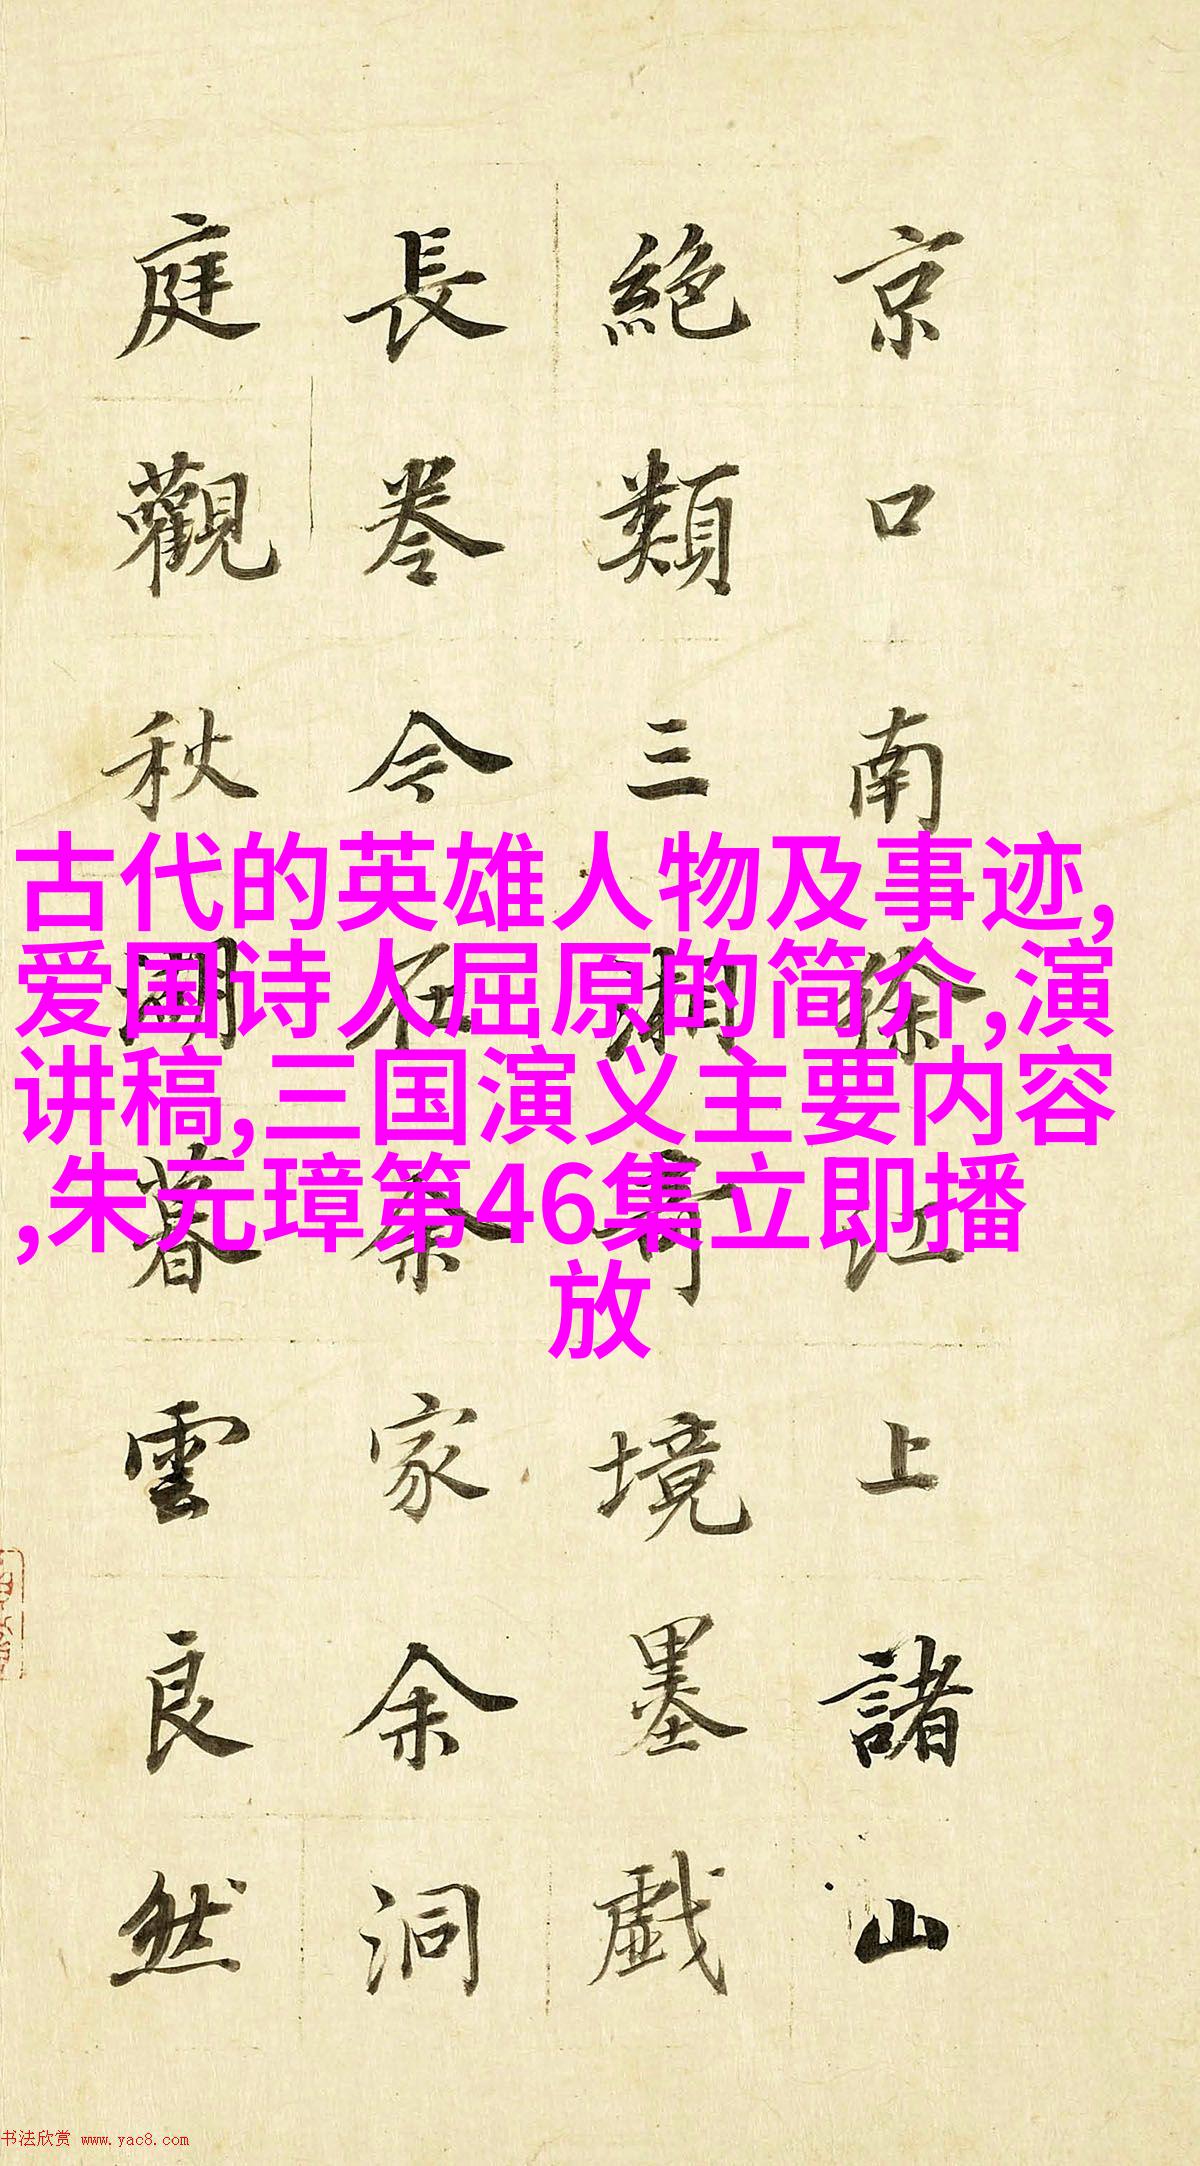 京口南徐江上諸山
絶類三湘奇境墨戲
長卷今在余家余洞
庭觀秋湖暮雲良然
古代的英雄人物及事迹,
爱国诗人屈原的简介,演
讲稿,三国演义主要内容
,朱元璋第46集立即播
放
书法欣赏 www.yac8.com